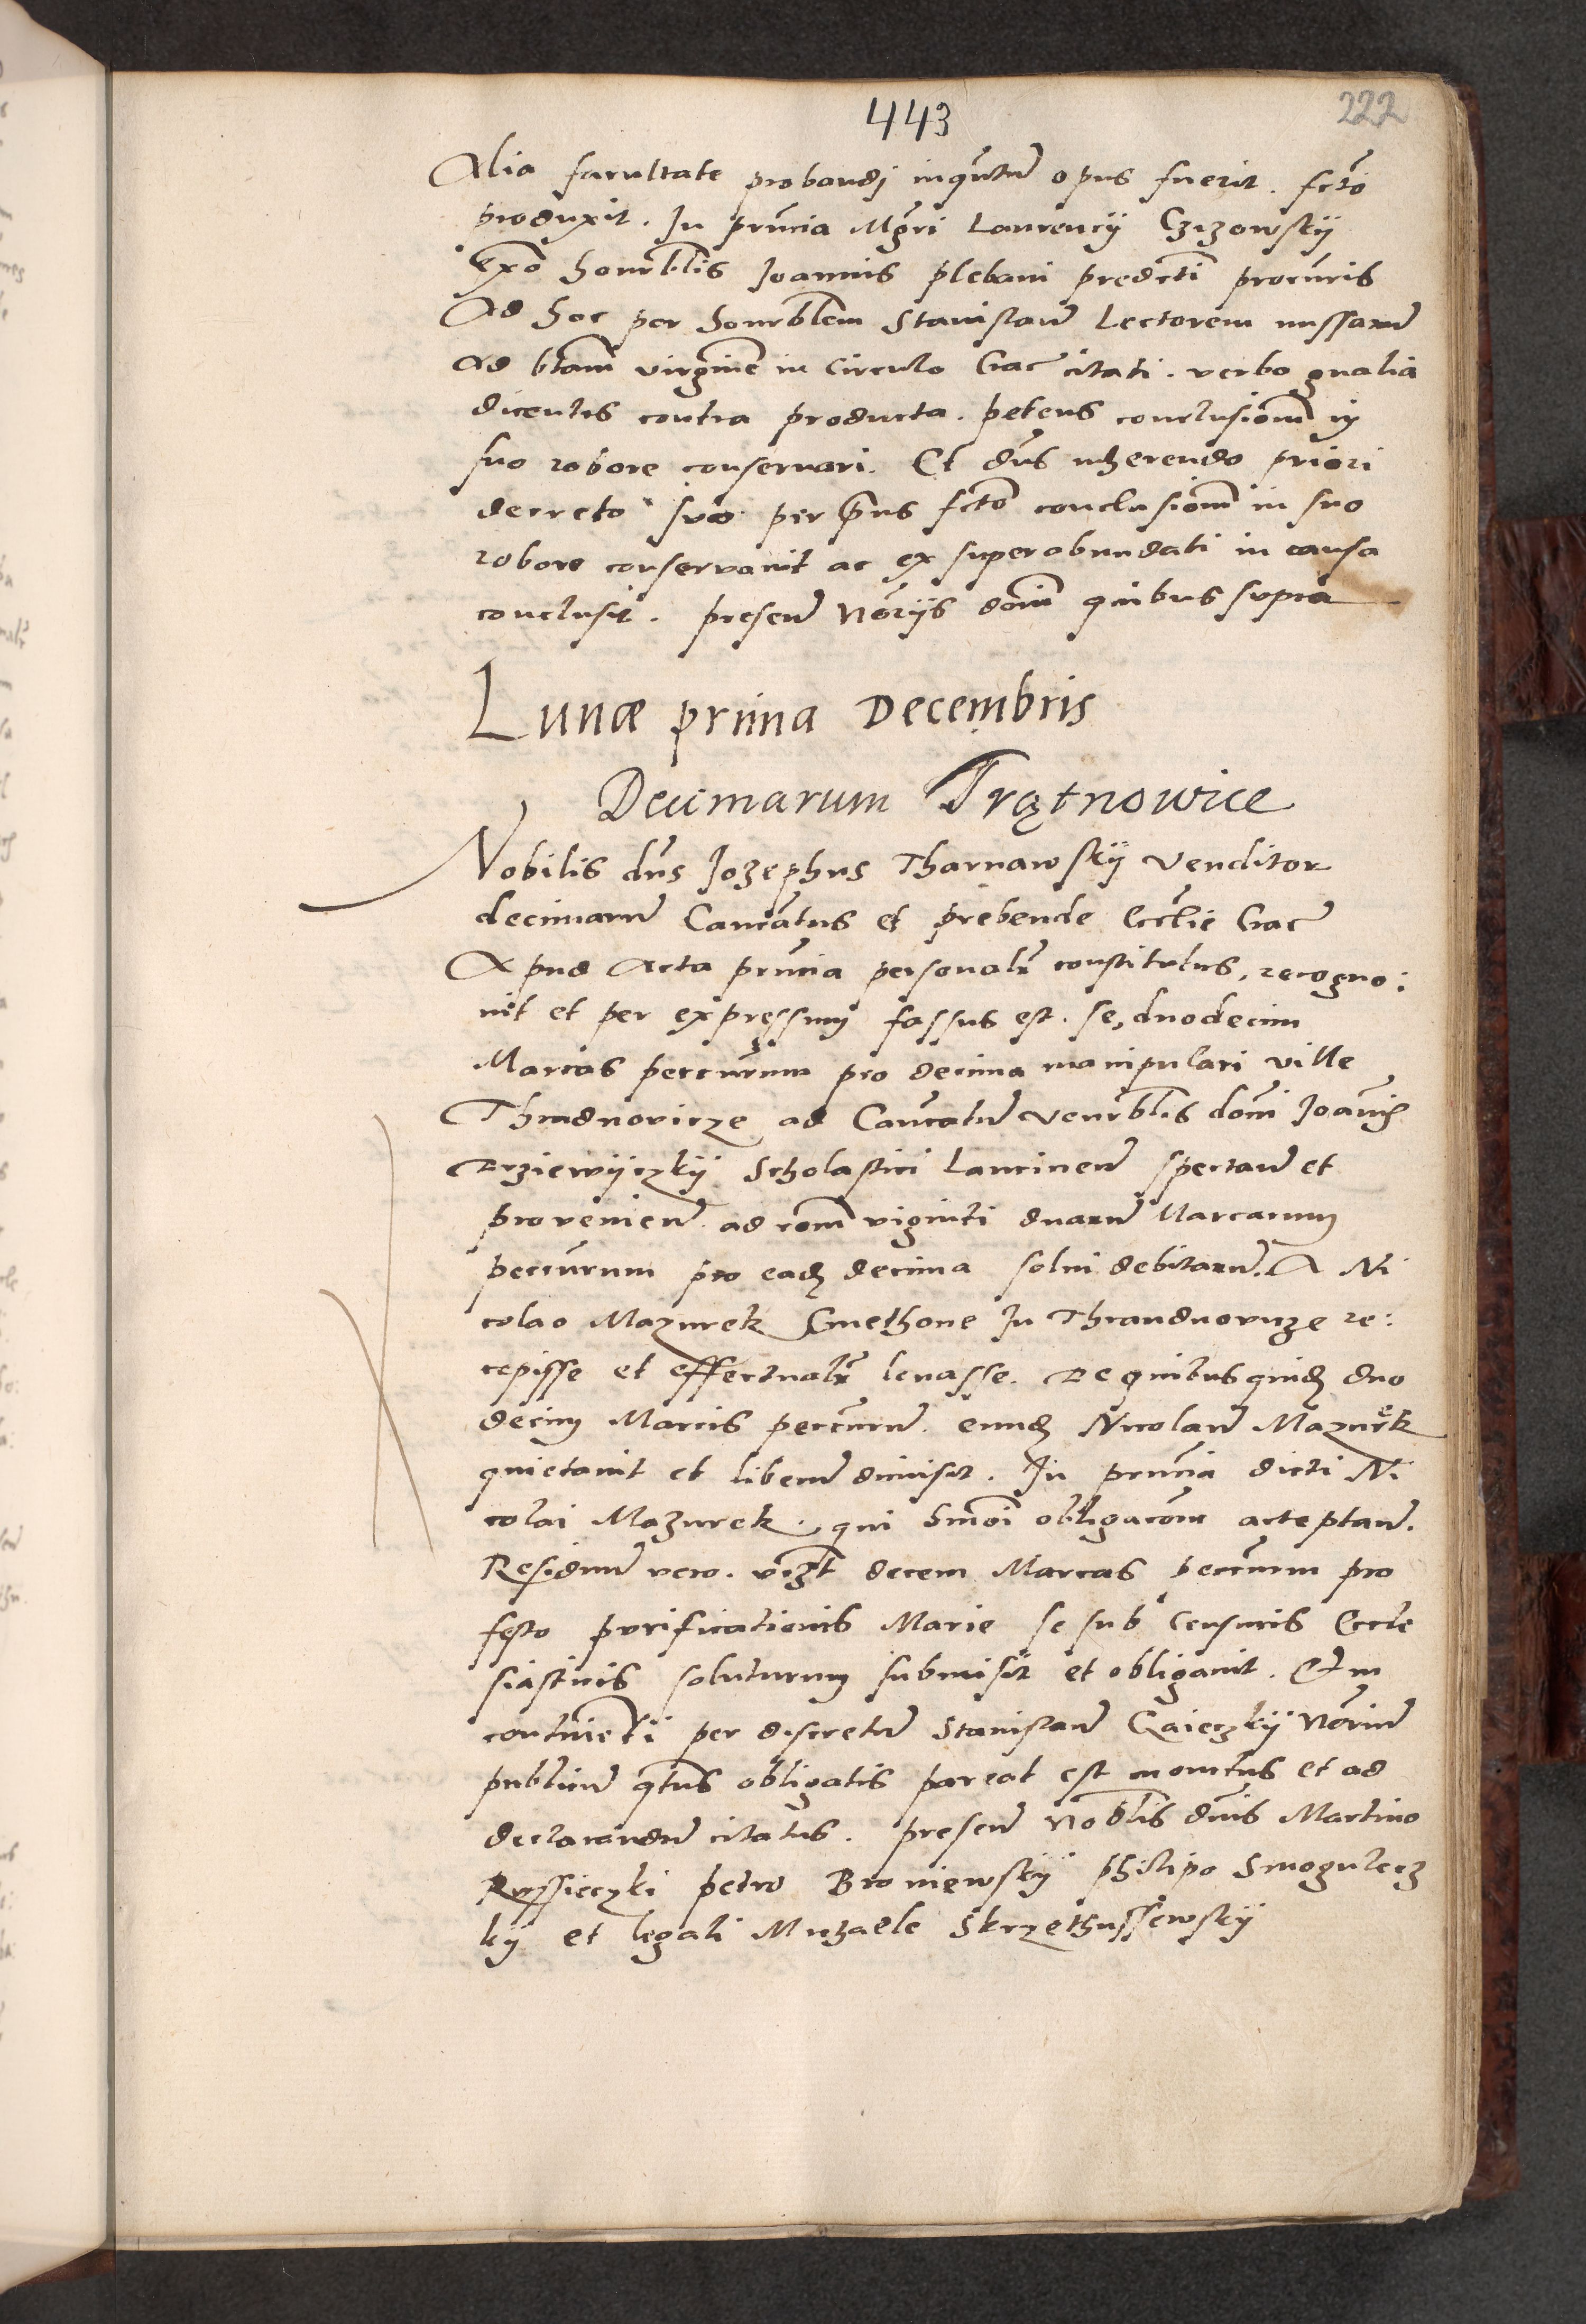 443
222
Alia facultate probandj inqntum opus fuerit. fcto
produxit. In prncia Mgri Laurencij Czizowskij
exo honrblis Joannis plebani predcti procuris
Ad hoc per honrblem Stanislaum Lectorem missarum
ad btam virginem in Circulo Crac citati. verbo gnalia
dicentis contra producta. petens conclusionem in
suo robore conservari. Et dns inherendo priori
decreto suo per prius fcto conclusionem in suo
robore conservavit ac ex superabundati in causa
conclusit. presen Noriis domi quibus supra
Lunæ prima Decembris
Decimarum Trątnowice
Nobilis dns Jozephus Tharnawskij Venditor
decimarum Canicatus et prebende Ecclie Crac
Apud Acta prncia personalr constitutus, recogno:
uit et per expressum fassus est. se, duodecim
Marcas peccurum pro decima manipulari ville
Thradnovicze ad Canicatum Venrblis domi Joannis
Drziewijczkij Scholastici Lancicien spectan et
provenien. ad rom viginti duarum Marcarum
peccurum pro eadem decima solui debitarum. A Ni
colao Mazurek Cmethone In Thrandnovicze re:
cepisse et effectualr levasse. De quibus quidem duo
decim Marcis peccurum. eundem Nicolaum Mazurek
quietavit et liberum dimisit. In prncia dicti Ni
colai Mazurek. qui Smoi obligacom acceptan.
Residuum vero. vizt decem Marcas peccurum pro
festo purificationis Marie se sub Censuris Eccle
siasticis soluturum submisit et obligavit. Et in
continenti per discretum Stanislaum Gaieczkij Norium
publicum qtus obligatis pareat est monitus et ad
declarandum citatus. presen Noblis dnis Martino
Ryssieczki petro Broniewskij philipo Smogulecz
kij et legali Michaele Skrzethussewskij